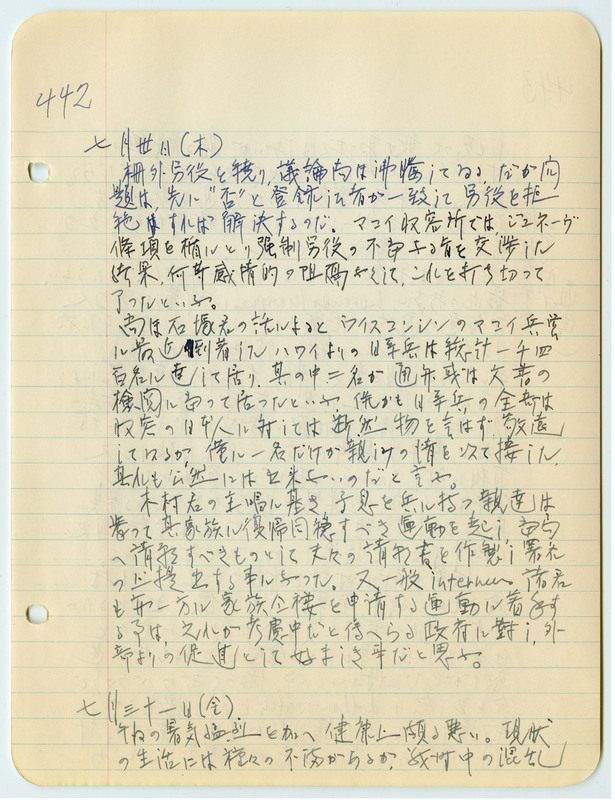 442
七月卅日(木)
柵外労役を繞り、議論尚ほ沸騰している。だが問
題は、先に"否"と登録した者が一致して労役を拒
絶すれば解決するのだ。マコイ収容所では、ジュネーヴ
條項を楯にとり強制労役の不当なる旨を交渉した
結果、何等威嚇的の阻碍なくして、これを打ち切って
了ったといふ。
尚ほ石塚君の話によると ウイスコンシンのマコイ兵営
に最近到着したハワイよりの日系兵は総計一千四
百名に達して居り、其の中二名が通弁或は文書の
検閲に当って居ったといふ。併かも日系兵の全部は
収容の日本人に対しては断然物を言はず敬遠
しているが、僅に一名だけが親切の情を以て接した、
其れも公然には出来ないのだと言ふ。
木村君の主唱に基き子息を兵に持つ親達は
挙って其家族に復帰同穏すべき運動を起し、当局
へ請願すべきものとして夫々の請願書を作製し署名
の上提出する事になった。又一般 internee 諸君
も亦一方に家族合棲を申請する運動に着手す
る事は、これが考慮中だと傳へらる政府に對し、外
部よりの促進として好ましき事だと思ふ。
七月三十一日(金)
の暑気 健康上頗る悪い。現状
の生活には種々の不満があるが、戦時中の混乱